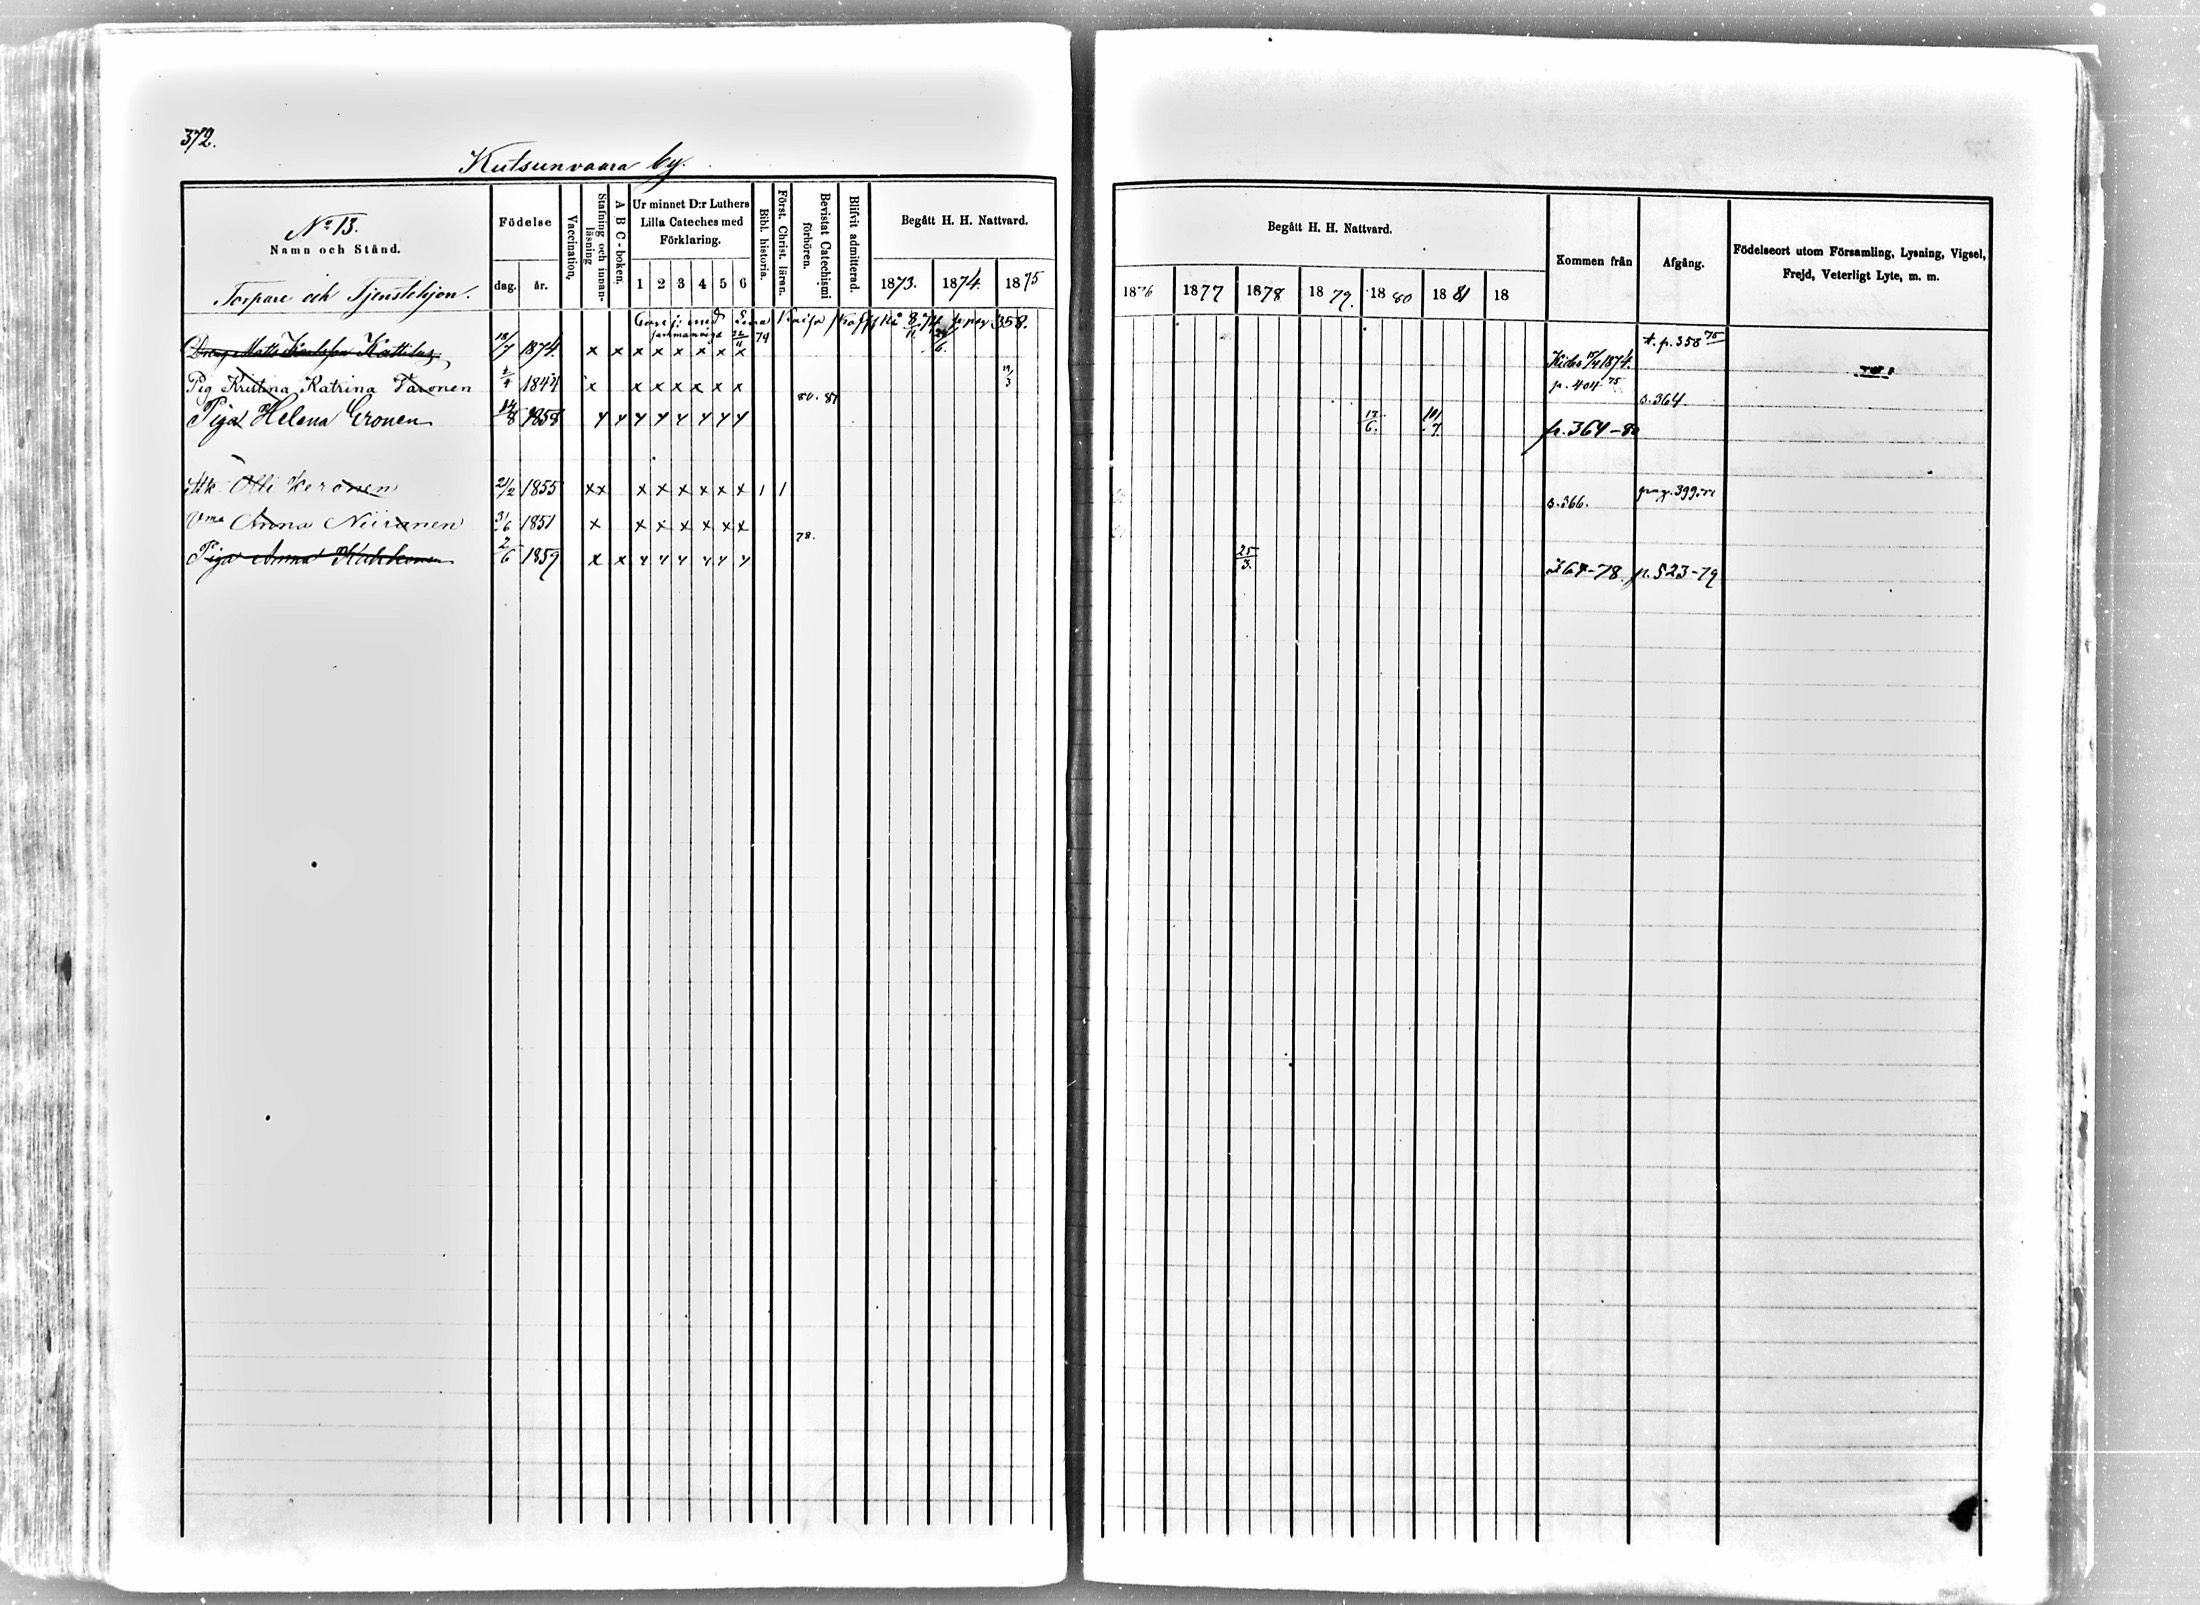 372.
Kutsunvaara by.
No 13.
Namn och Stånd.
Torpare och Tjenstehjon.
Födelse
dag. år.
Vaccination.
Stafning och innanläsning
A B C-boken.
Ur minnet D:r Luthers
Lilla Cateches med
Förklaring.
1 2 3 4 5 6
Bibl. historia.
Först. Christ. läran.
Bevistat Catechismi
förhören.
Blifvit admitterad.
Begått H. H. Nattvard.
1873. 1874. 1875
Begått H. H. Nattvard.
1876 1877 1878 1879. 1880 1881 18
Kommen från
Afgång.
Födelseort utom Församling, Lysning, Vigsel,
Frejd, Veterligt Lyte, m. m.
med Lena Kaisa 358.
Dreng Matts Kattilus 1874 x x x x x x x x t. p. 358 75
Kides 1874.
Pig Kristina Katrina 1844 x x x x x x x p. 404 75
80. 81 s. 364
Piga Helena Eronen 14/8 1858 17/6. p. 364-80
Olli Keronen 21/2 1855 x x x x x x x x 1 1 s. 366. pag. 399
Anna Niiranen 31/6 1851 x x x x x x x
78.
Piga Anna 2/6 1859 x x 25/3. 364-78 p. 523-79